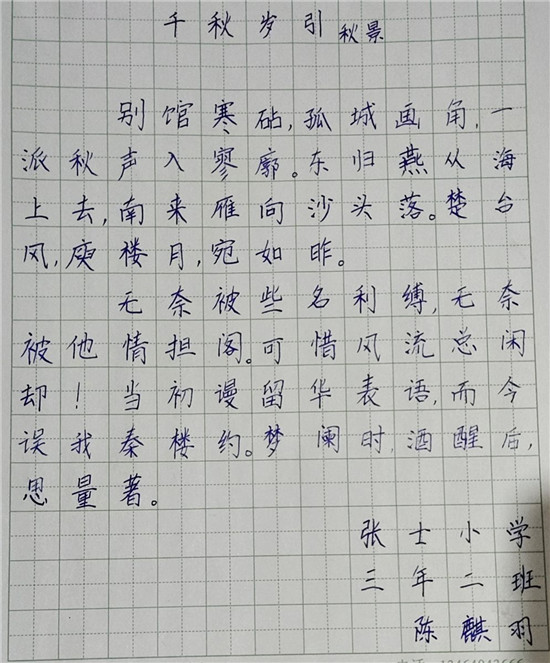 千秋岁引 秋景
别馆寒砧,孤城画角,一
派秋声入寥廓。东归燕从海
上去,南来雁向沙头落。楚台
风,庾楼月,宛如昨。
无奈被些名利缚,无奈
被他情担阁。可惜风流总闲
却!当初谩留华表语,而今
误我秦楼约。梦阑时,酒醒后,
思量著。
张士小学
三年二班
陈麒羽